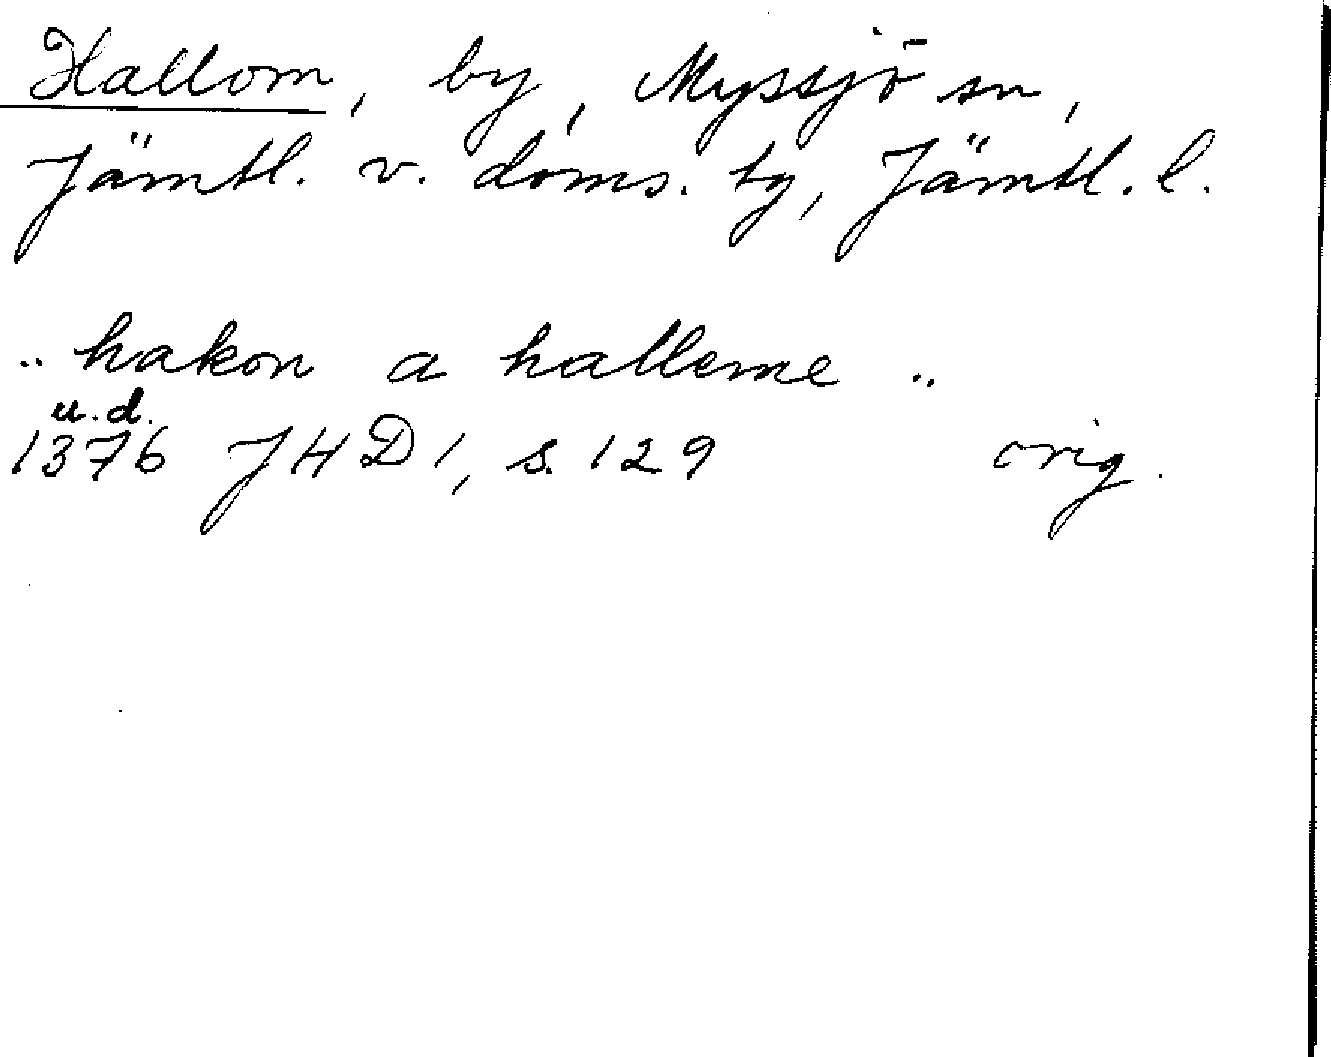 Hallom, by, Myssjö sn,
Jämtl. v. doms. tg, Jämtl. l.
.. hakon a halleme ..
u.d.
1376 JHD 1, s. 129 orig.